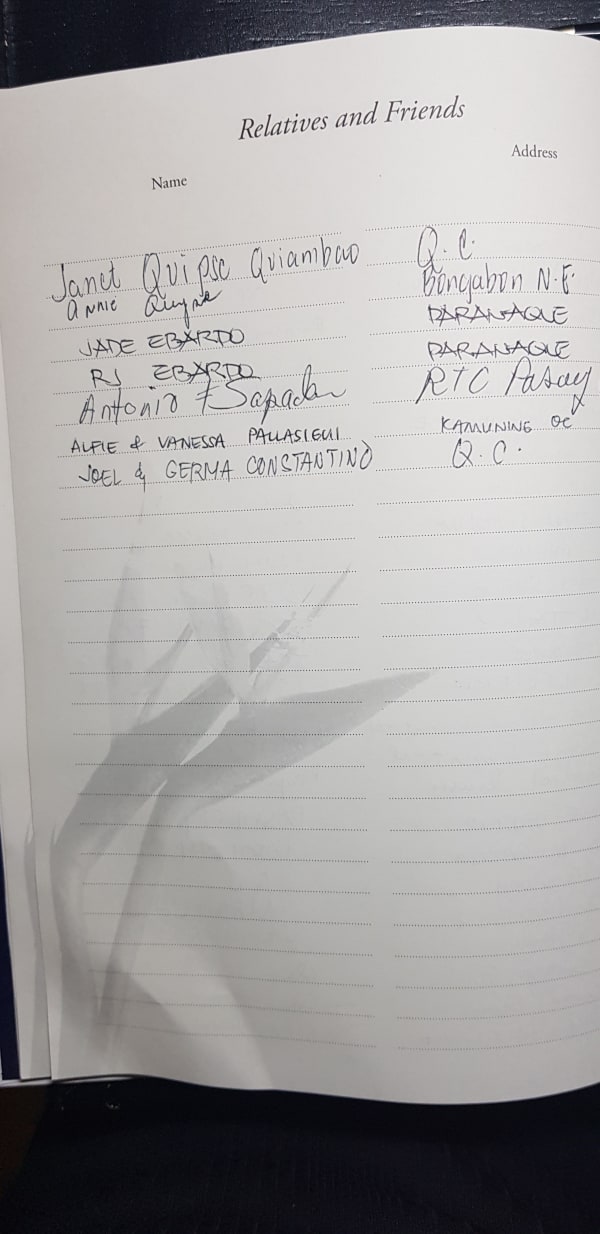 Relatives and Friends
Name Address
Janet Quipse Quiambao Q.C.
Annie Bongabon N.E.
JADE EBARDO PARANAQUE
RJ EBARDO PARANAQUE
Antonio RTC Pasay
ALFIE & VANESSA PALLASIGUI KAMUNING QC
JOEL & GERMA CONSTANTINO Q.C.